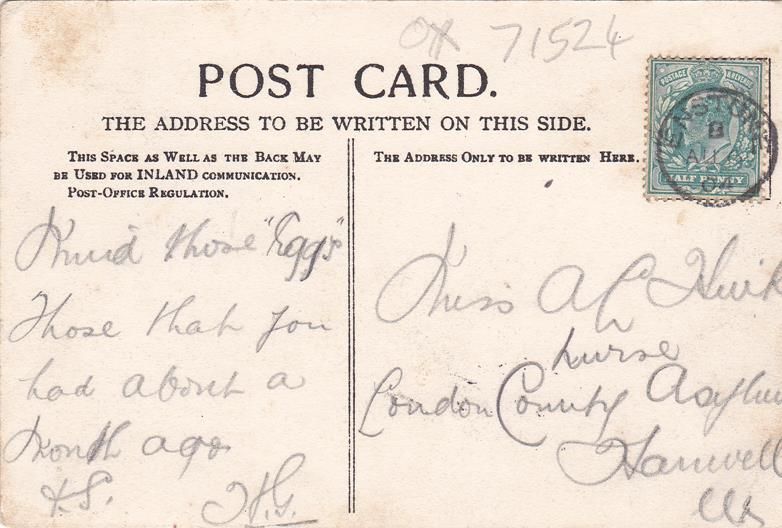 71524
POST CARD.
THE ADDRESS TO BE WRITTEN ON THIS SIDE.
THIS SPACE AS WELL AS THE BACK MAY
BE USED FOR INLAND COMMUNICATION.
POST-OFFICE REGULATION.
THE ADDRESS ONLY TO BE WRITTEN HERE.
POSTAGE & REVENUE
HALF PENNY
B
AU
04
those "Eggs"
Those that you
had about a
Month ago
H.G.
Miss A
Nurse
London County Asylum
Hanwell